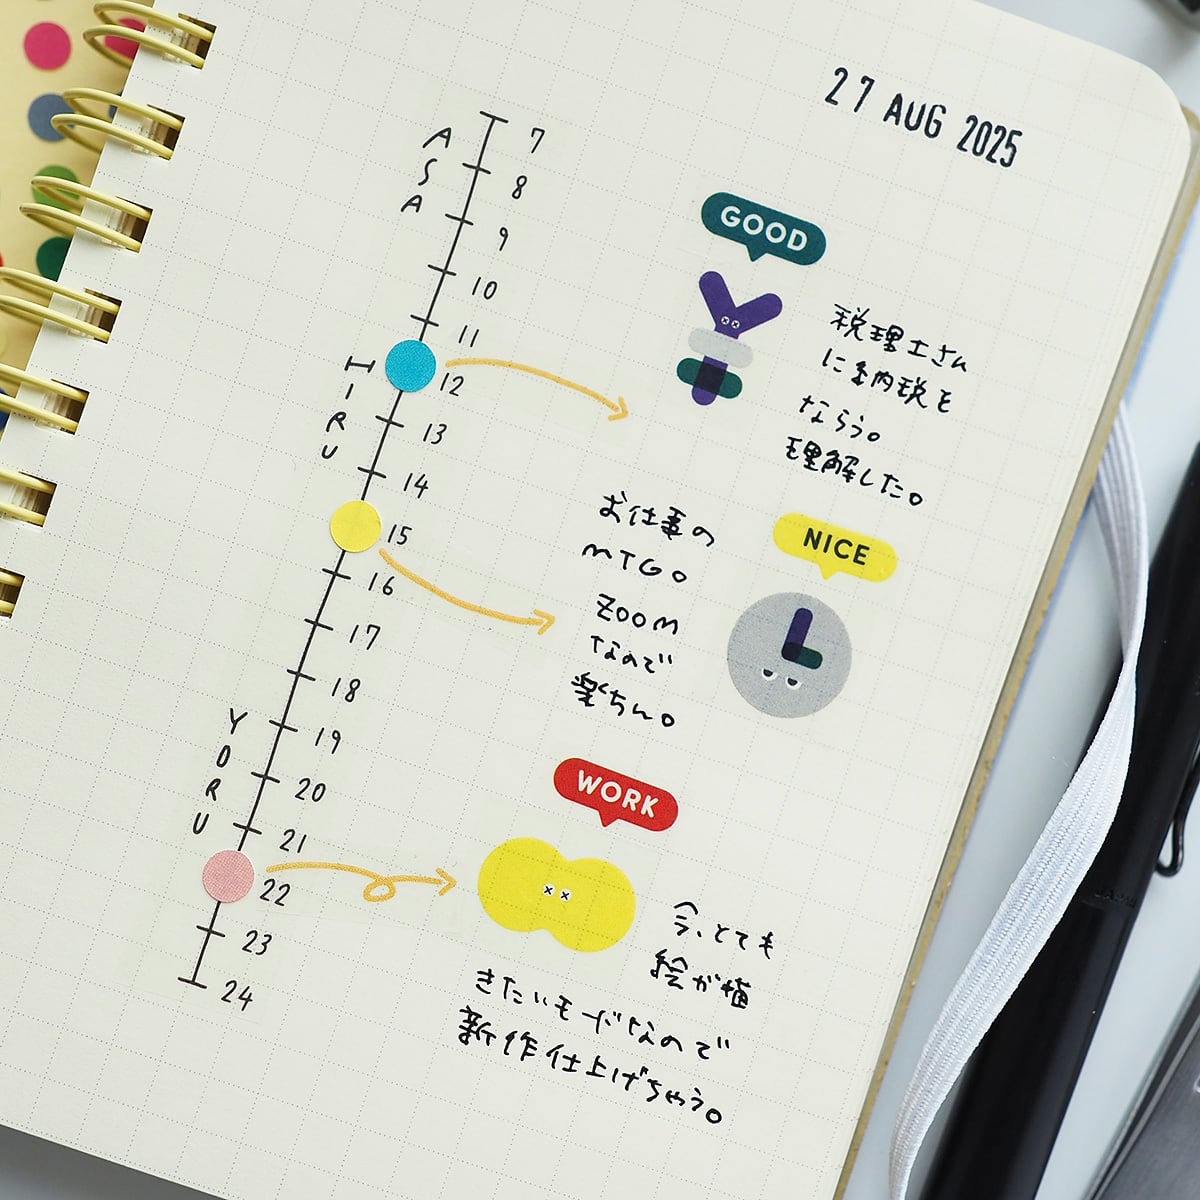 27 AUG 2025
7
8
9
10
11
12
13
14
15
16
17
18
19
20
21
22
23
24
ASA
HIRU
YORU
GOOD
税理士さん
に納税を
ならう。
理解した。
お仕事の
MTG。
ZOOM
なので
楽ちん。
NICE
WORK
今、とても
絵が描
きたいモードなので
新作仕上げちゃう。